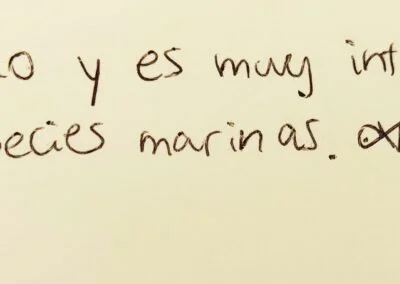 y es muy int
ecies marinas.